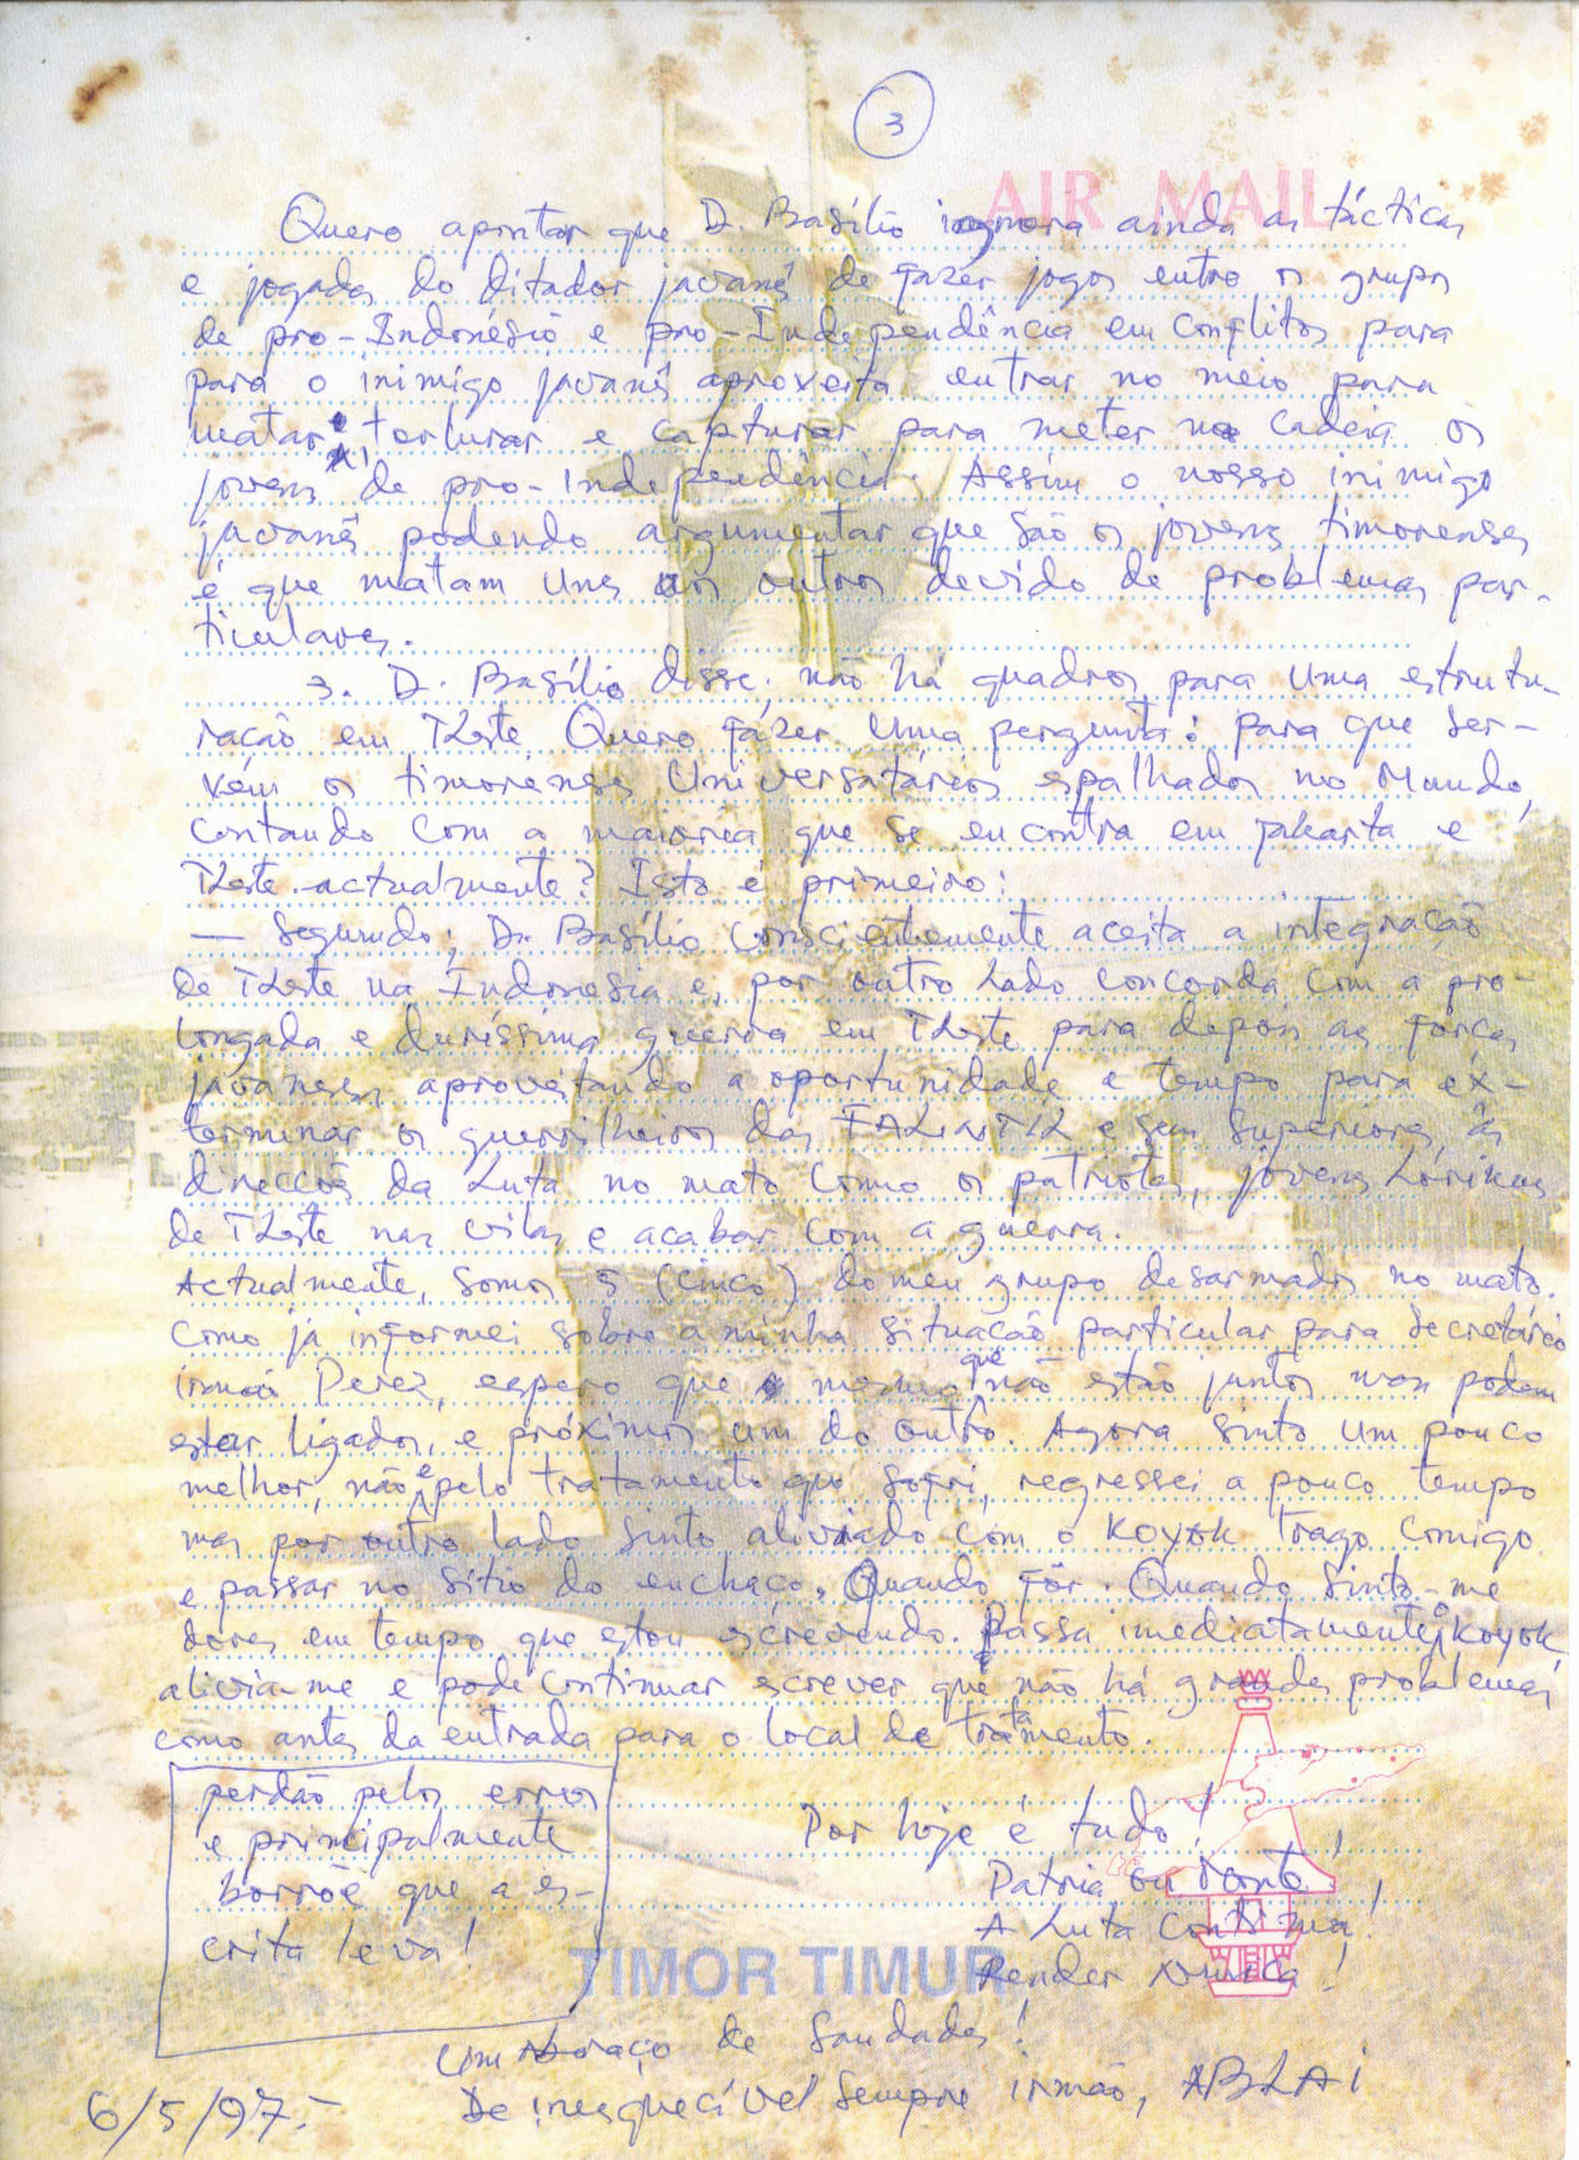 3
AIR MAIL
Quero apontar que D. Basílio ignora ainda as tácticas
e jogadas do ditador javanês de fazer jogos entre os grupos
de pro-Indonésio e pro-Independência em conflitos para
para o inimigo javanês aproveita entrar no meio para
matar, torturar e capturar para meter na cadeia os
jovens de pro-independência. Assim o nosso inimigo
javanês podendo argumentar que são os jovens timorenses
é que matam uns aos outros devido de problemas par-
ticulares.
3. D. Basílio disse; não há quadros para uma estrutu-
ração em TLeste. Quero fazer uma pergunta: para que ser-
vem os timorenses Universatários espalhados no Mundo,
contando com a maiorea que se encontra em jakarta e
TLeste actualmente? Isto é primeiro:
— Segundo; D. Basílio conscientemente aceita a integração
de TLeste na Indonesia e, por outro lado concorda com a pro-
longada e duríssima guerra em TLeste para depois as forças
javaneses aproveitando a oportunidade e tempo para ex-
terminar os guerrilheiros das FALINTIL e seus Superiores, às
direcções da Luta no mato como os patriotas, jovens Lórikus
de TLeste nas vilas e acabar com a guerra.
Actualmente, somos 5 (cinco) do meu grupo desarmados no mato.
Como já informei sobre a minha situação particular para Secretário
irmão Perez, espero que mesmo que não estão juntos mas podem
estar ligados, e próximos um do outro. Agora sinto um pouco
melhor, não é pelo tratamento que sofri, regressei a pouco tempo
mas por outro lado sinto aliviado com o koyok trago comigo
e passar no sítio do enchaço. Quando fôr. Quando sinto-me
dores em tempo que estou escrevendo. Passa imediatamente o koyok
alivia-me e pode continuar escrever que não há grandes problemas
como antes da entrada para o local de tratamento.
perdão pelos erros
e principalmente
borrõe que a es-
crita leva!
Por hoje é tudo!
Patria ou Morte!
A Luta Continua!
Render Nunca!
TIMOR TIMUR
Um Abraço de Saudades!
De inesquecível sempre irmão, ABLAI
6/5/97.-